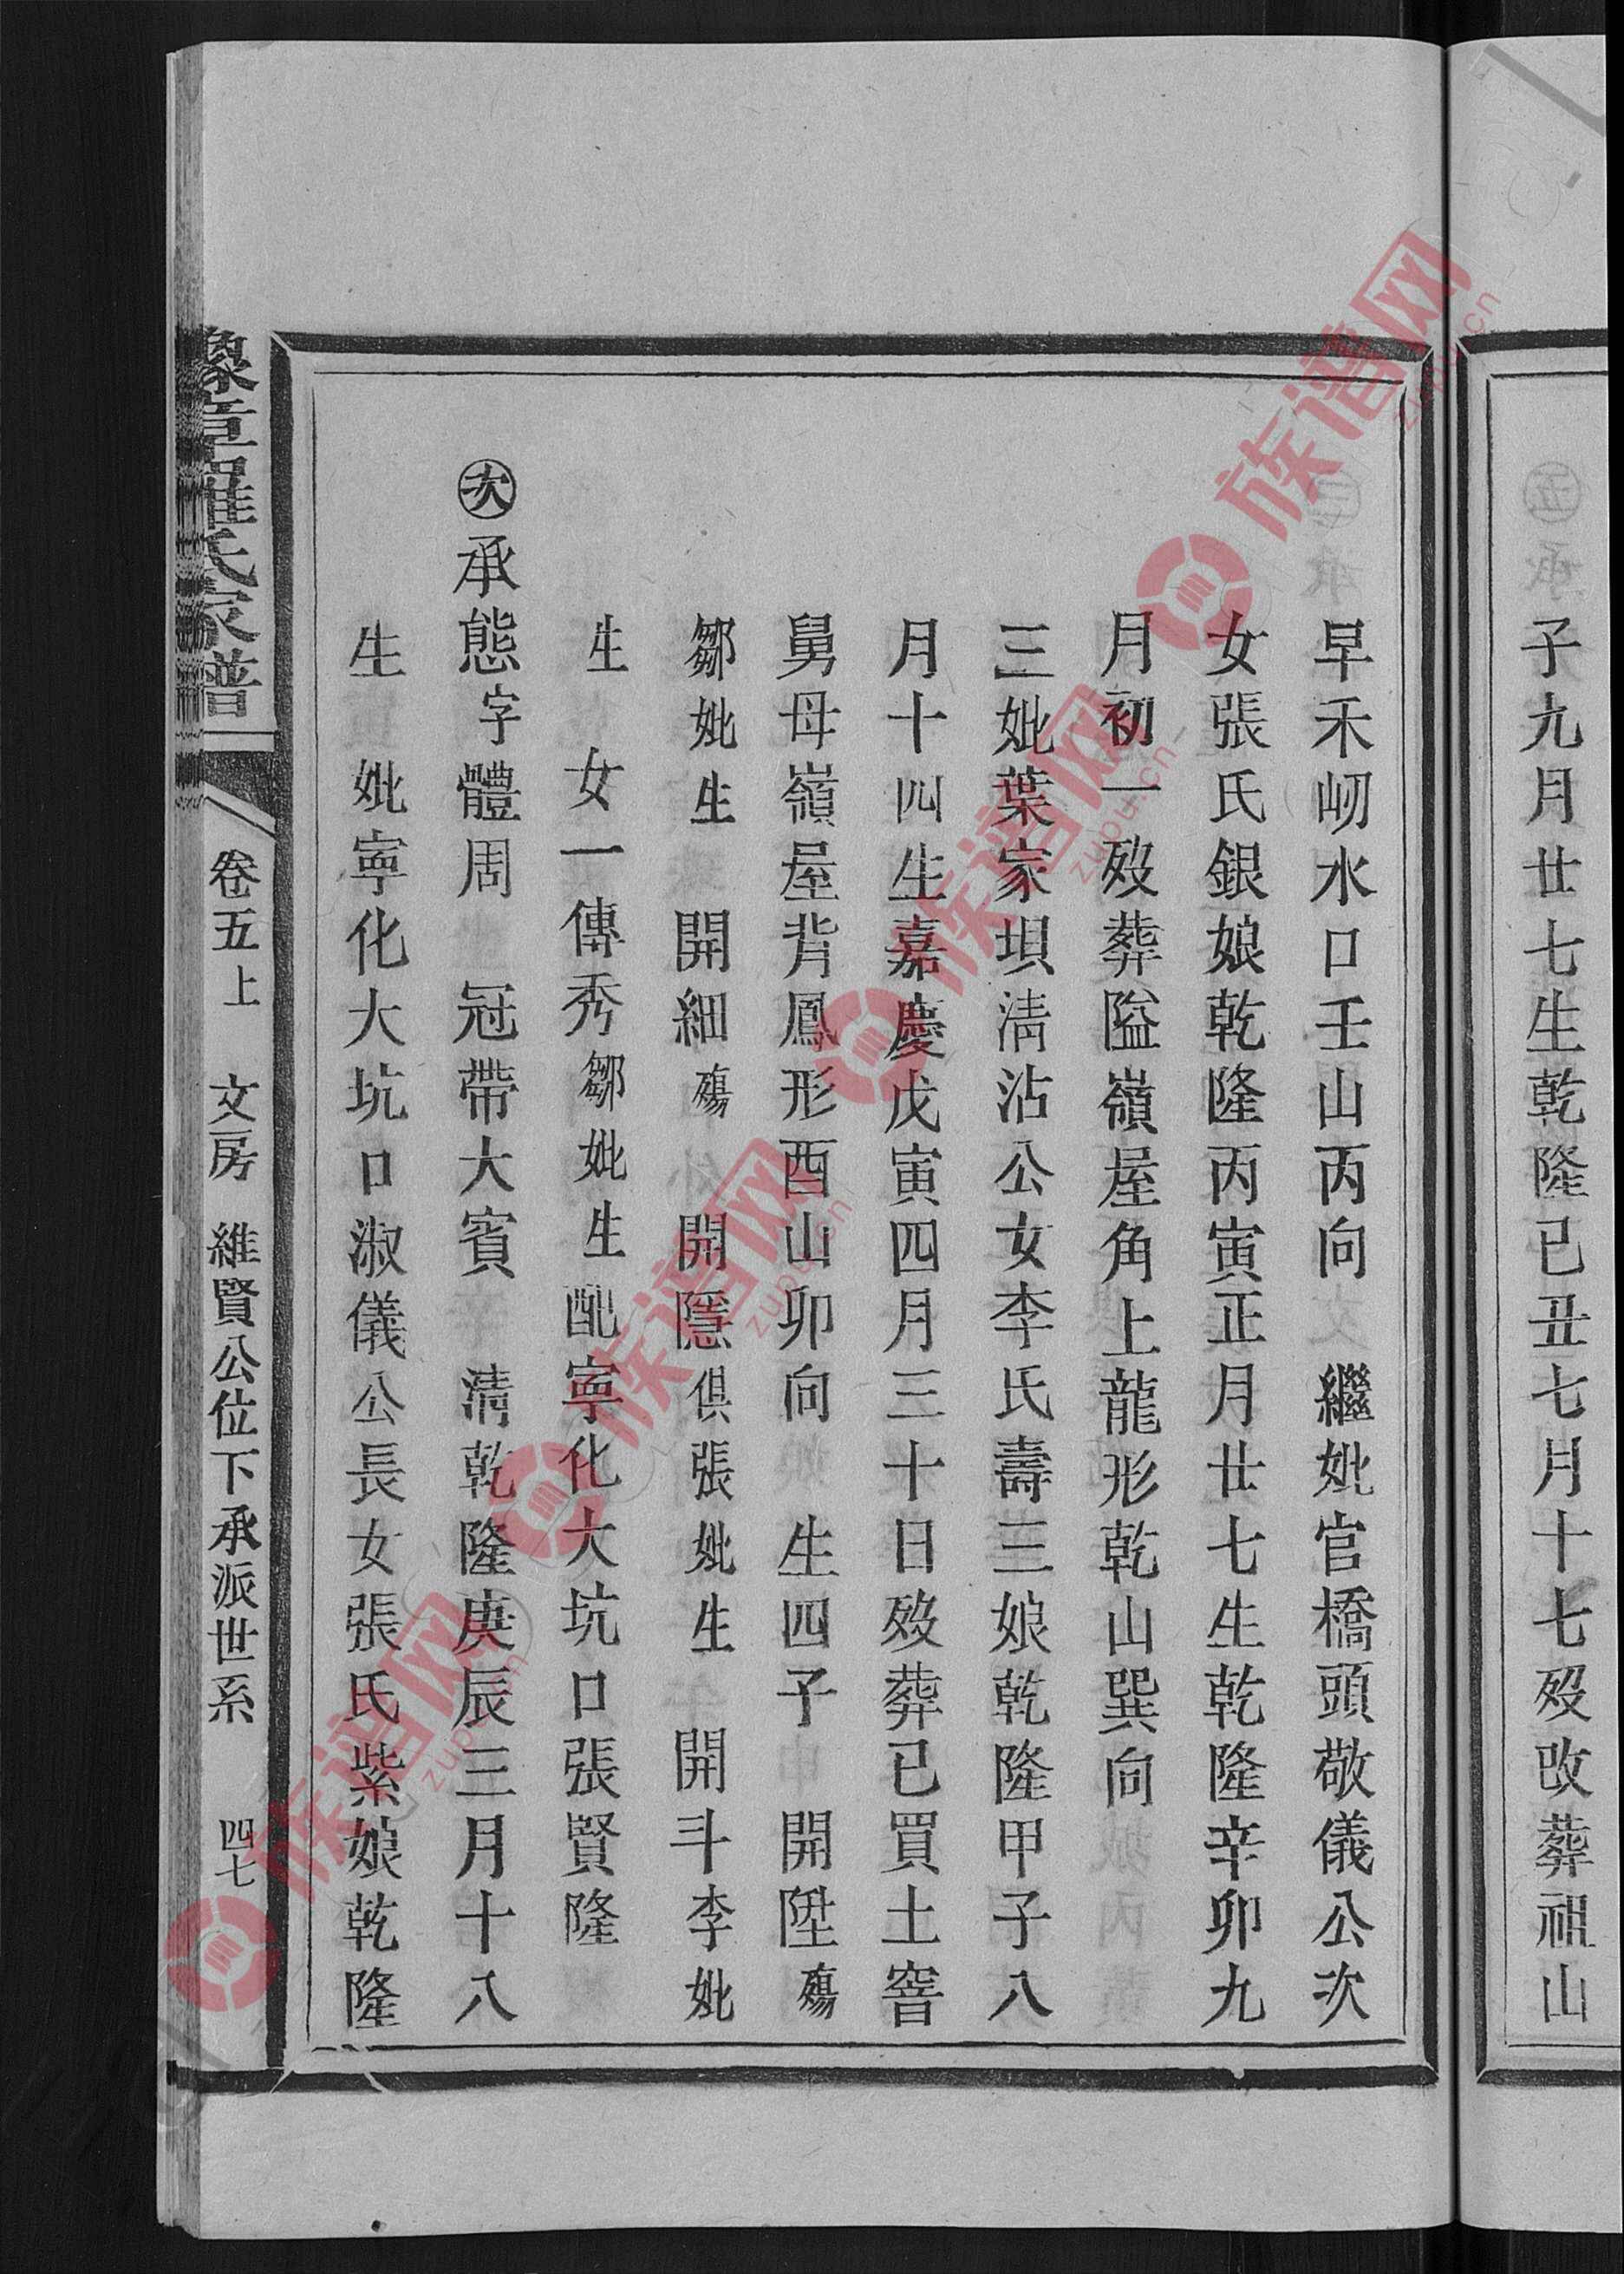 子九月廿七生乾隆已丑七月十七歿改葬祖山
早禾㘭水口壬山丙向　繼妣官橋頭敬儀公次
女張氏銀娘乾隆丙寅正月廿七生乾隆辛卯九
月初一歿葬隘嶺屋角上龍形乾山巽向
三妣葉家垻清沾公女李氏壽三娘乾隆甲子八
月十四生嘉慶戊寅四月三十日歿葬已買土窖
舅母嶺屋背鳳形酉山卯向　生四子　開陞殤
鄒妣生　開細殤　開隱俱張妣生　開斗李妣
生　女一傳秀鄒妣生配寧化大坑口張賢隆
㊅承態字體周　冠帶大賓　清乾隆庚辰三月十八
生　妣寧化大坑口淑儀公長女張氏紫娘乾隆
豫章羅氏家譜　卷五上　文房　維賢公位下承派世系　四七
族谱网 zupu.cn
族谱网 zupu.cn
族谱网 zupu.cn
族谱网 zupu.cn